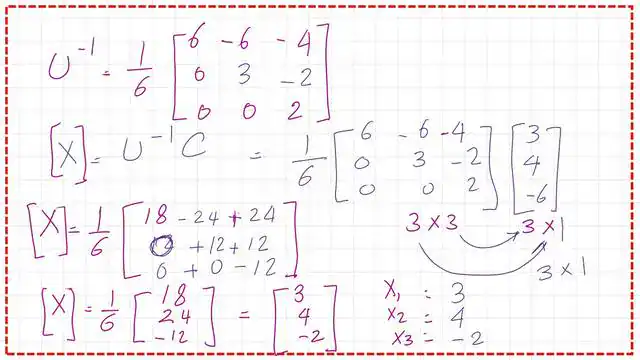 U⁻¹ = 1/6 [6 -6 -4
0 3 -2
0 0 2]
[X] = U⁻¹ C = 1/6 [6 -6 -4
0 3 -2
0 0 2] [3
4
-6]
3×3 3×1
3×1
[X] = 1/6 [18 - 24 + 24
+12 + 12
0 + 0 - 12]
[X] = 1/6 [18
24
-12] = [3
4
-2]
X₁ = 3
X₂ = 4
X₃ = -2